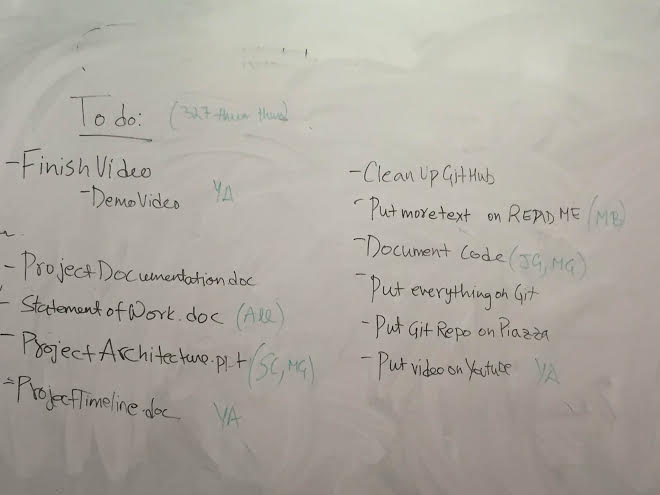 To do: (327
- Finish Video
- Demo Video YA
- Project Documentation.doc
- Statement of Work.doc (All)
- Project Architecture.ppt (SC, MG)
- ProjectTimeline.doc YA
- Clean Up GitHub
- Put more text on README (MB)
- Document Code (JG, MG)
- Put everything on Git
- Put Git Repo on Piazza
- Put video on Youtube YA